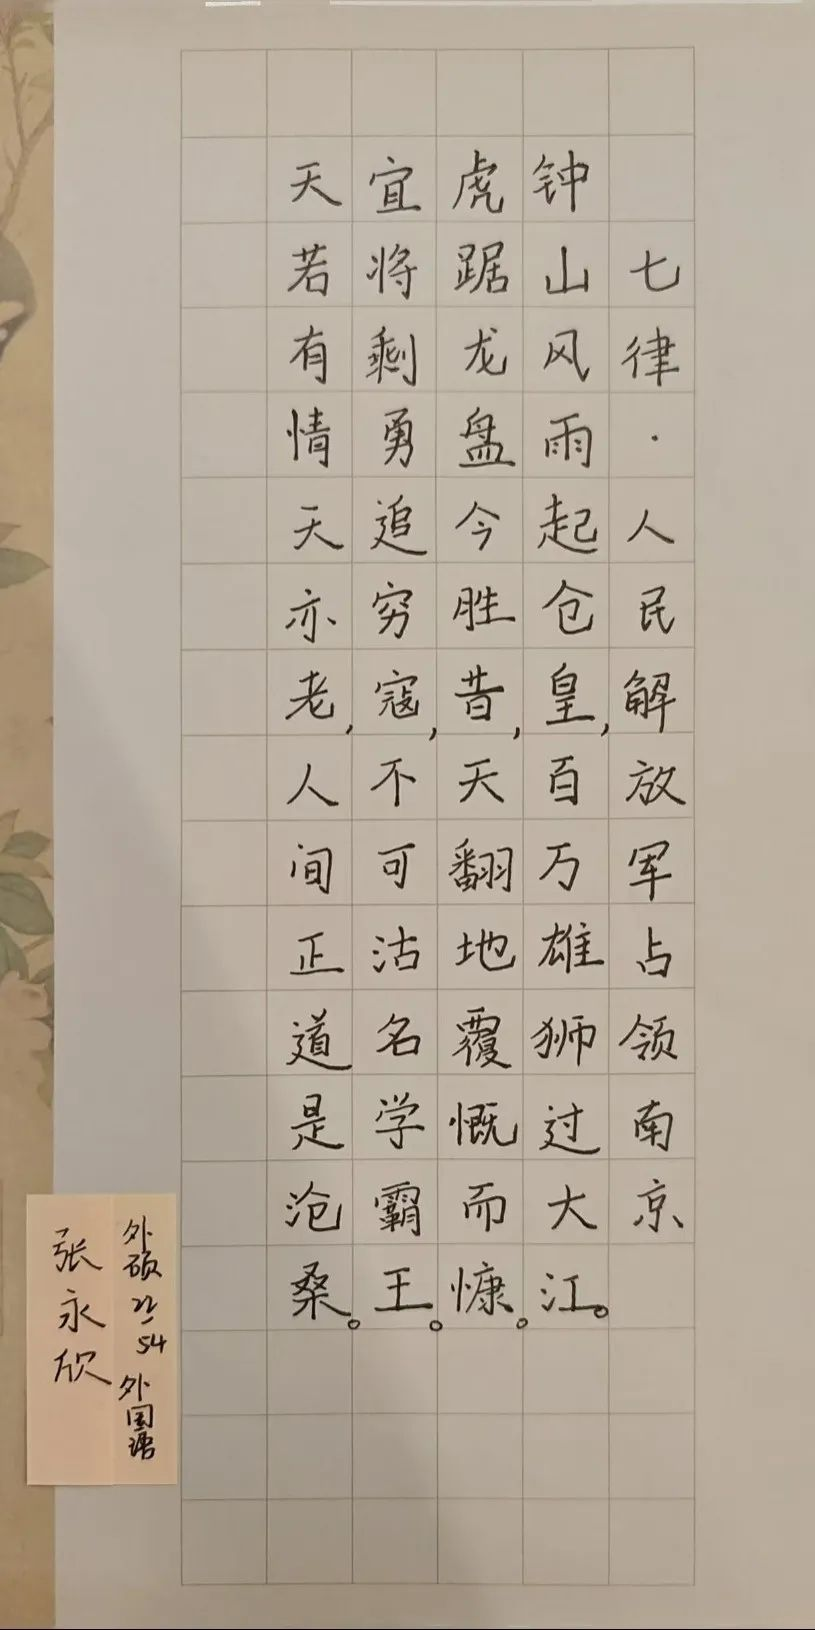 七律·人民解放军占领南京
钟山风雨起仓皇,百万雄狮过大江。
虎踞龙盘今胜昔,天翻地覆慨而慷。
宜将剩勇追穷寇,不可沽名学霸王。
天若有情天亦老,人间正道是沧桑。
外硕22-54 外国语
张永欣